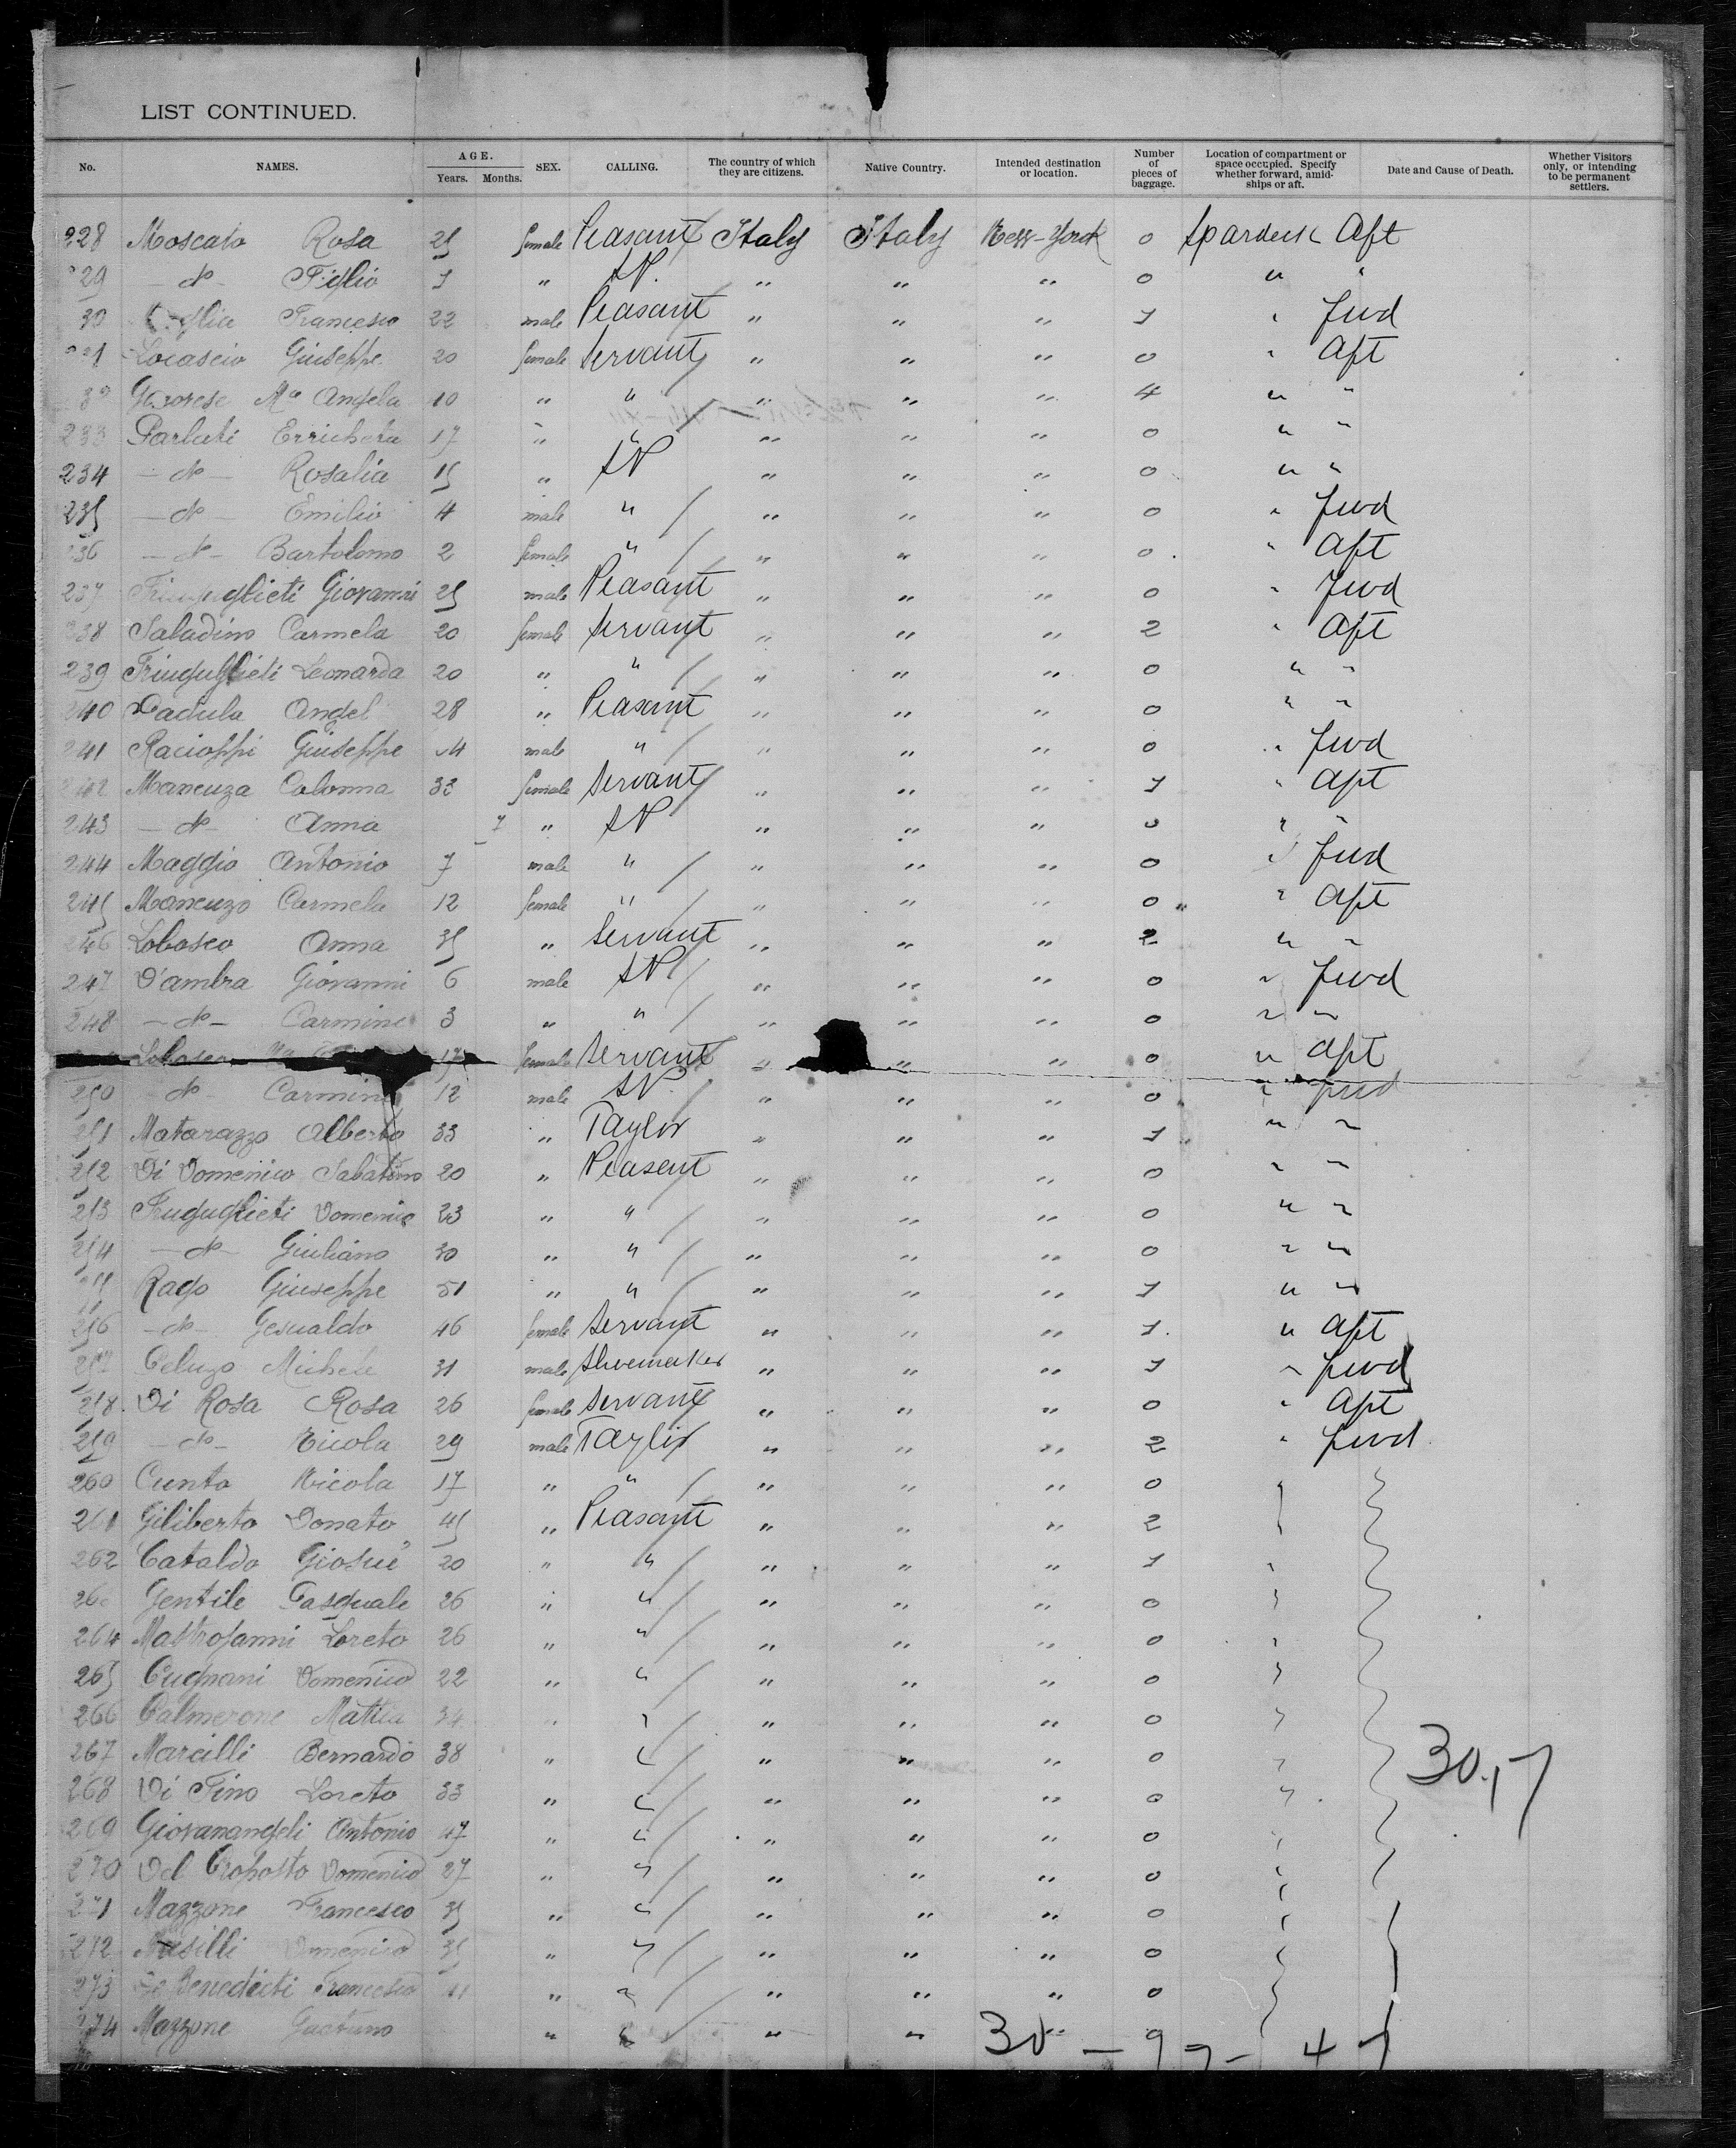 LIST CONTINUED.
No. NAMES. AGE. Years. Months. SEX. CALLING. The country of which they are citizens. Native Country. Intended destination or location. Number of pieces of baggage. Location of compartment or space occupied. Specify whether forward, amidships or aft. Date and Cause of Death. Whether Visitors only, or intending to be permanent settlers.
228 Moscato Rosa 25 female Peasant Italy Italy New-York 0 Spardeck Aft
229 - do - Figlio 1 " SP. " " " 0 " "
30 Francesco 22 male Peasant " " " 1 " fwd
Locascio Giuseppe 20 female Servant " " " 0 " Aft
Ma Angela 10 " " " " " 4 " "
233 Parlati Erricheta 17 " " " " " 0 " "
234 - do - Rosalia 15 " SP " " " 0 " "
235 - do - Emilio 4 male " " " " 0 " fwd
236 - do - Bartolomo 2 female " " " " 0 " Aft
237 Giovanni 25 male Peasant " " " 0 " fwd
238 Saladino Carmela 20 female Servant " " " 2 " Aft
239 Friuguglieti Leonarda 20 " " " " " 0 " "
240 Padula Angel 28 " Peasant " " " 0 " "
241 Racioppi Giuseppe male " " " " 0 " fwd
242 Mancuza Colonna 33 female Servant " " " 1 " Aft
243 - do - Anna 7 " SP " " " 0 " "
244 Maggio Antonio 7 male " " " " 0 " fwd
245 Mancuzo Carmela 12 female " " " " 0 " Aft
246 Lobosco Anna 35 " Servant " " " 2 " "
247 D'ambra Giovanni 6 male SP " " " 0 " fwd
248 - do - Carmine 3 " " " " " 0 " "
Lobosco 17 female Servant " " " 0 " Aft
250 do - Carmine 12 male SP " " " 0 " fwd
251 Matarazzo Alberto 33 " Taylor " " " 1 " "
252 Di Domenico Sabatino 20 " Peasent " " " 0 " "
253 Fruguglieti Domenic 23 " " " " " 0 " "
254 - do - Giuliano 30 " " " " " 0 " "
255 Rago Giuseppe 51 " " " " " 1 " "
256 - do - Gesualdo 46 female Servant " " " 1 " Aft
257 Celuzo Michele 31 male Shoemaker " " " 1 " fwd
258 Di Rosa Rosa 26 female Servant " " " 0 " Aft
259 - do - Nicola 29 male Taylor " " " 2 " fwd
260 Cunto Nicola 17 " " " " " 0
261 Giliberto Donato 45 " Peasant " " " 2
262 Cataldo Giosué 20 " " " " " 1 "
Gentile Pasquale 26 " " " " " 0 "
264 Mastrojanni Loreto 26 " " " " " 0 "
265 Cugnani Domenico 22 " " " " " 0 "
266 Palmerone Mattia 34 " " " " " 0 "
267 Marcilli Bernardo 38 " " " " " 0 "
30,17
268 Di Fino Loreto 33 " " " " " 0 "
269 Giovanangeli Antonio 47 " " " " " 0 "
270 Del Proposto Domenico 27 " " " " " 0 "
271 Mazzone Francesco 35 " " " " " 0 "
272 Domenico 35 " " " " " 0
273 De Benedicti Francesco 41 " " " " " 0
274 Mazzone Gaetano " " " "